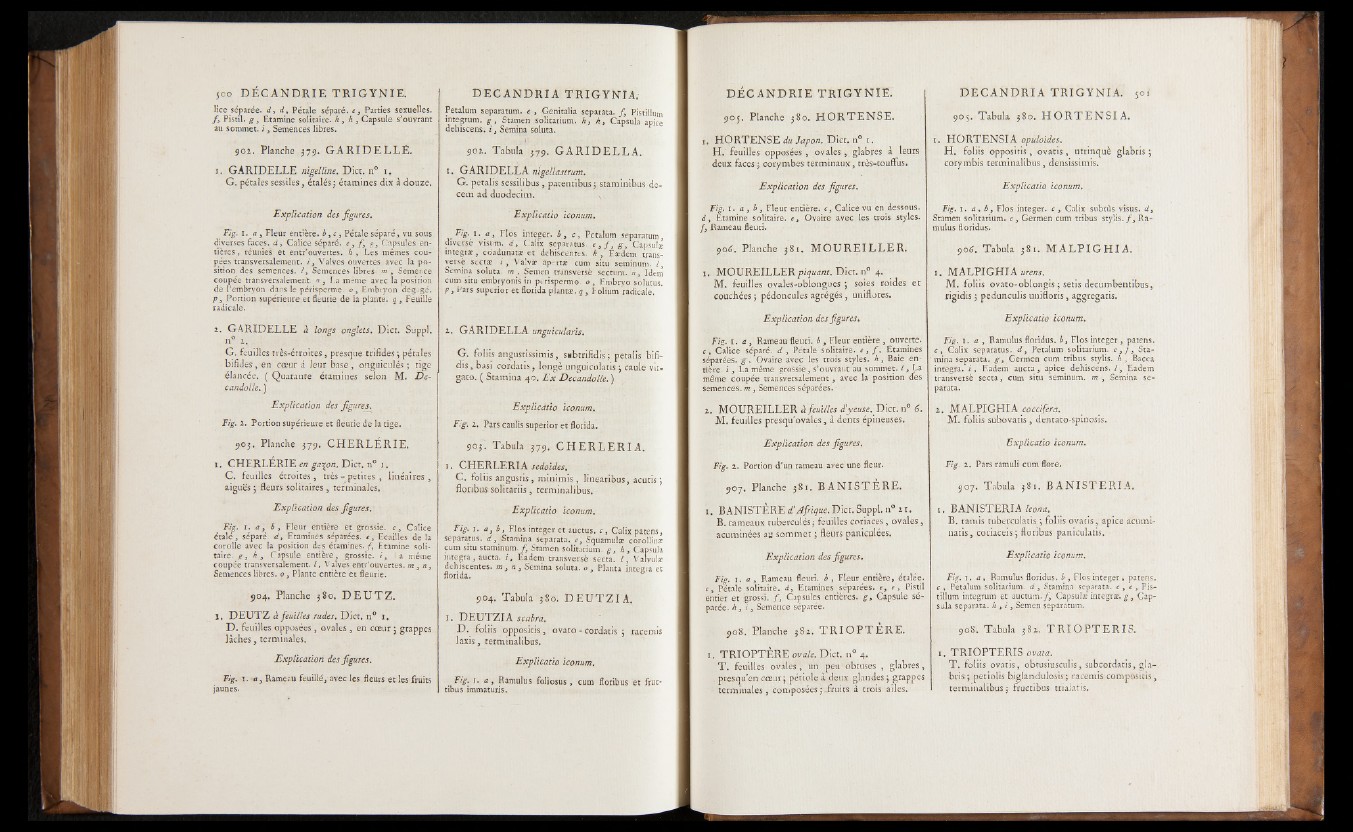 500 DÉCANDRIE TRIGYNIE.
lice séparée. d, d, Pétale séparé. e, Parties sexuelles.
f, Pistil. g, Etamine solitaire. h, h, Capsule s'ouvrant
au sommet. i, Semences libres.
902. Planche 379. GARIDELLE.
1. GARIDELLE nigelline. Dict. n° 1.
G. pétales sessiles, étalés; étamines dix à douze.
Explication des figures.
Fig. 1. a, Fleur entière. b, c, Pétale séparé, vu sous
diverses faces. d, Calice séparé. e, f, g, Capsules en-
tières, réunies et entr'ouvertes. h, Les mêmes cou-
pées transversalement. i, Valves ouvertes avec la po-
sition des semences. l, Semences libres. m, Semence
coupée transversalement. n, La même avec la position
de l'embryon dans le périsperme. o, Embryon dégagé.
p, Portion supérieure et fleurie de la plante. q, Feuille
radicale.
2. GARIDELLE à longs onglets. Dict. Suppl.
n° 2.
G. feuilles très-étroites, presque trifides; pétales
bifides, en cœur à leur base, onguiculés; tige
élancée. (Quarante étamines selon M. De-
candolle.)
Explication des figures.
Fig. 2. Portion supérieure et fleurie de la tige.
903. Planche 379. CHERLÉRIE.
1. CHERLÉRIE en gazon. Dict. n° 1.
C. feuilles étroites, très-petites, linéaires,
aiguës; fleurs solitaires, terminales.
Explication des figures.
Fig. 1. a, b, Fleur entière et grossie. c, Calice
étalé, séparé. d, Etamines séparées. e, Ecailles de la
corolle avec la position des étamines. f, Etamine soli-
taire. g, h, Capsule entière, grossie. i, La même
coupée transversalement. l, Valves entr'ouvertes. m, n,
Semences libres. o, Plante entière et fleurie.
904. Planche 380. DEUTZ.
1. DEUTZ à feuilles rudes. Dict. n° 1.
D. feuilles opposées, ovales, en cœur; grappes
lâches, terminales.
Explication des figures.
Fig. 1. a, Rameau feuillé, avec les fleurs et les fruits
jaunes.
DECANDRIA TRIGYNIA.
Petalum separatum. e, Genitalia separata. f, Pistillum
integrum. g, Stamen solitarium. h, h, Capsula apice
dehiscens. i, Semina soluta.
902. Tabula 379. GARIDELLA.
1. GARIDELLA nigellastrum.
G. petalis sessilibus, patentibus; staminibus de-
cem ad duodecim.
Explicatio iconum.
Fig. 1. a, Flos integer. b, c, Petalum separatum,
diversè visum. d, Calix separatus. e, f, g, Capsulæ
integræ, coadunatæ et dehiscentes. h, Eædem trans-
versè sectæ. i, Valvæ apertæ cum situ seminum. l,
Semina soluta. m, Semen transversè sectum. n, Idem
cum situ embryonis in perispermo. o, Embryo solutus.
p, Pars superior et florida plantæ. q, Folium radicale.
2. GARIDELLA unguicularis.
G. foliis angustissimis, subtrifidis; petalis bifi-
dis, basi cordatis, longè unguiculatis; caule vir-
gato. (Stamina 40. Ex Decandolle.)
Explicatio iconum.
Fig. 2. Pars caulis superior et florida.
903. Tabula 379. CHERLERIA.
1. CHERLERIA sedoides.
C. foliis angustis, minimis, linearibus, acutis;
floribus solitariis, terminalibus.
Explicatio iconum.
Fig. 1. a, b, Flos integer et auctus. c, Calix patens,
separatus. d, Stamina separata. e, Squamulæ corollinæ
cum situ staminum. f, Stamen solitarium. g, h, Capsula
integra, aucta. i, Eadem transversè secta. l, Valvulæ
dehiscentes. m, n, Semina soluta. o, Planta integra et
florida.
904. Tabula 380. DEUTZIA.
1. DEUTZIA scabra.
D. foliis oppositis, ovato-cordatis; racemis
laxis, terminalibus.
Explicatio iconum.
Fig. 1. a, Ramulus foliosus, cum floribus et fruc-
tibus immaturis.
DÉCANDRIE TRIGYNIE.
905. Planche 380. HORTENSE.
1. HORTENSE du Japon. Dict. n° 1.
H. feuilles opposées, ovales, glabres à leurs
deux faces; corymbes terminaux, très-touffus.
Explication des figures.
Fig. 1. a, b, Fleur entière. c, Calice vu en dessous.
d, Etamine solitaire. e, Ovaire avec les trois styles.
f, Rameau fleuri.
906. Planche 381. MOUREILLER.
1. MOUREILLER piquant. Dict. n° 4.
M. feuilles ovales-oblongues; soies roides et
couchées; pédoncules agrégés, uniflores.
Explication des figures.
Fig. 1. a, Rameau fleuri. b, Fleur entière, ouverte.
c, Calice séparé. d, Pétale solitaire. e, f, Etamines
séparées. g, Ovaire avec les trois styles. h, Baie en-
tière. i, La même grossie, s'ouvrant au sommet. l, La
même coupée transversalement, avec la position des
semences. m, Semences séparées.
2. MOUREILLER à feuilles d'yeuse. Dict. n° 6.
M. feuilles presqu'ovales, à dents épineuses.
Explication des figures.
Fig. 2. Portion d'un rameau avec une fleur.
907. Planche 381. BANISTÈRE.
1. BANISTÈRE d'Afrique. Dict. Suppl. n° 21.
B. rameaux tuberculés; feuilles coriaces, ovales,
acuminées au sommet; fleurs paniculées.
Explication des figures.
Fig. 1. a, Rameau fleuri. b, Fleur entière, étalée.
c, Pétale solitaire. d, Etamines séparées. e, e, Pistil
entier et grossi. f, Capsules entières. g, Capsule sé-
parée. h, i, Semence séparée.
908. Planche 382. TRIOPTÈRE.
1. TRIOPTÈRE ovale. Dict. n° 4.
T. feuilles ovales, un peu obtuses, glabres,
presqu'en cœur; pétiole à deux glandes; grappes
terminales, composées; fruits à trois ailes.
DECANDRIA TRIGYNIA. 501
905. Tabula 380. HORTENSIA.
1. HORTENSIA opuloides.
H. foliis oppositis, ovatis, utrinquè glabris;
corymbis terminalibus, densissimis.
Explicatio iconum.
Fig. 1. a, b, Flos integer. c, Calix subtùs visus. d,
Stamen solitarium. e, Germen cum tribus stylis. f, Ra-
mulus floridus.
906. Tabula 381. MALPIGHIA.
1. MALPIGHIA urens.
M. foliis ovato-oblongis; setis decumbentibus,
rigidis; pedunculis unifloris, aggregatis.
Explicatio iconum.
Fig. 1. a, Ramulus floridus. b, Flos integer, patens.
c, Calix separatus. d, Petalum solitarium. e, f, Sta-
mina separata. g, Germen cum tribus stylis. h, Bacca
integra. i, Eadem aucta, apice dehiscens. l, Eadem
transversè secta, cum situ seminum. m, Semina se-
parata.
2. MALPIGHIA coccifera.
M. foliis subovatis, dentato-spinosis.
Explicatio iconum.
Fig. 2. Pars ramuli cum flore.
907. Tabula 381. BANISTERIA.
1. BANISTERIA leona.
B. ramis tuberculatis; foliis ovatis, apice acumi-
natis, coriaceis; floribus paniculatis.
Explicatio iconum.
Fig. 1. a, Ramulus floridus. b, Flos integer, patens.
c, Petalum solitarium. d, Stamina separata. e, e, Pis-
tillum integrum et auctum. f, Capsulæ integræ. g, Cap-
sula separata. h, i, Semen separatum.
908. Tabula 382. TRIOPTERIS.
1. TRIOPTERIS ovata.
T. foliis ovatis, obtusiusculis, subcordatis, gla-
bris; petiolis biglandulosis; racemis compositis,
terminalibus; fructibus trialatis.